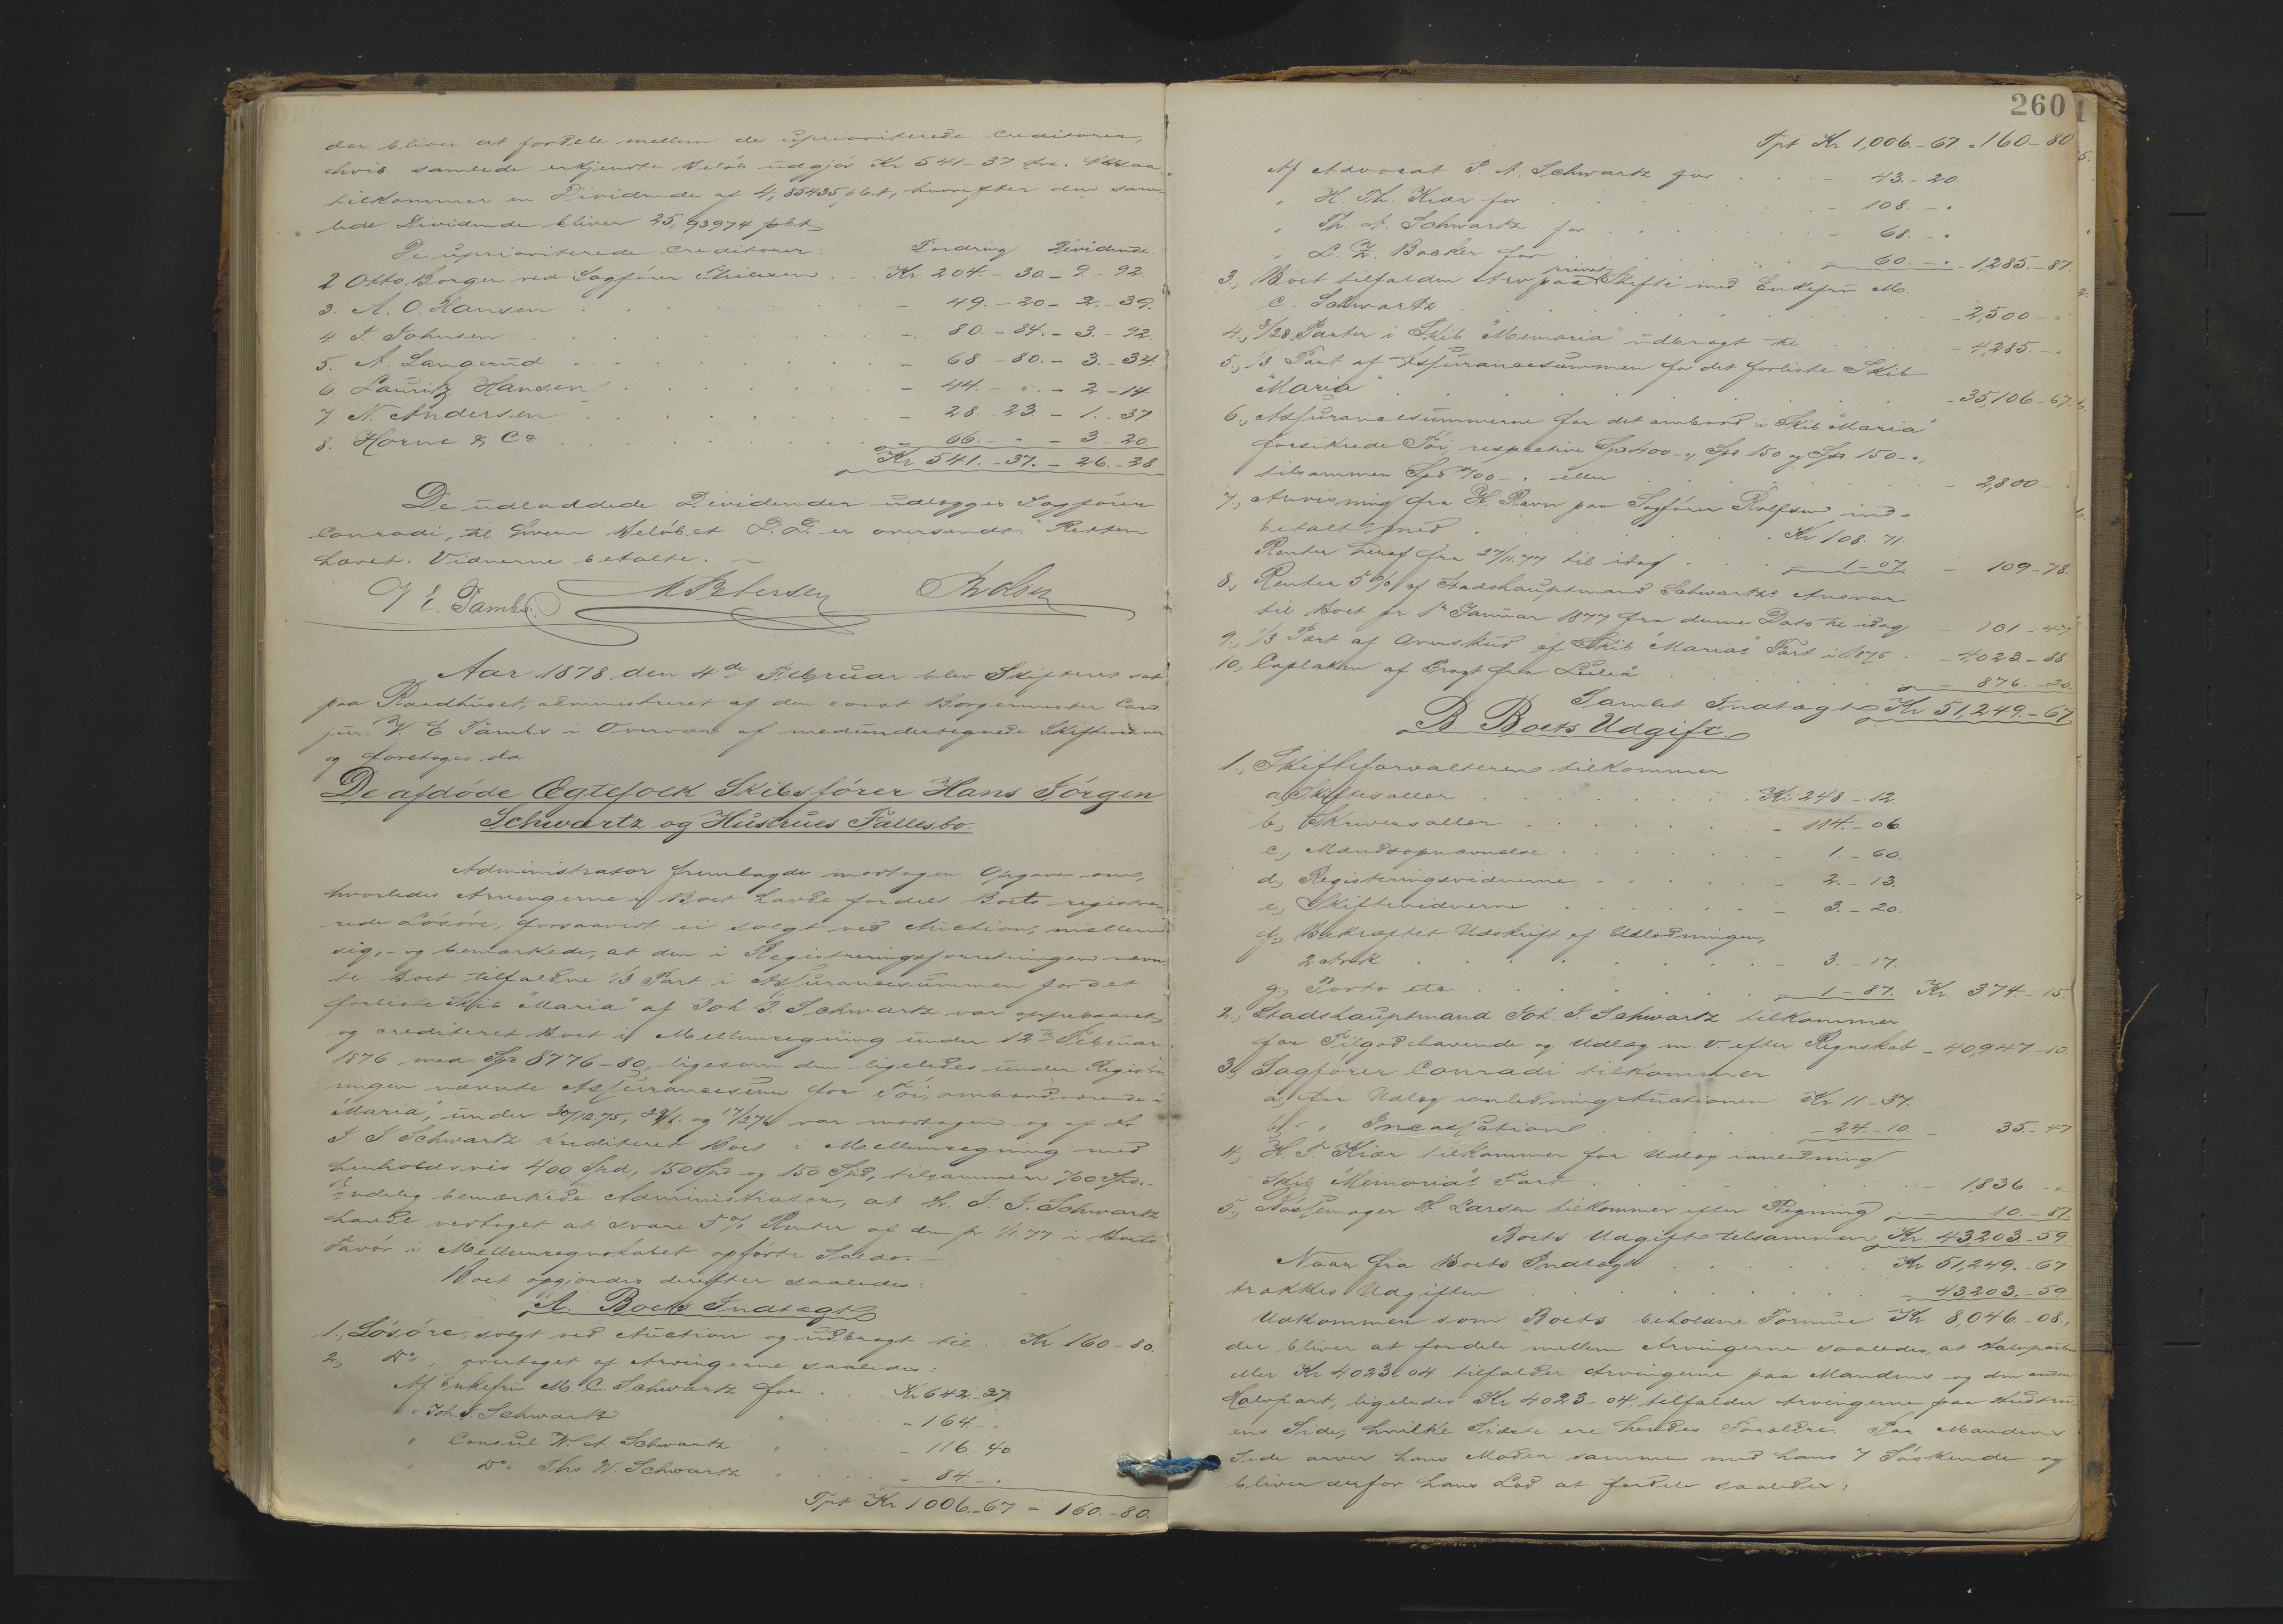 der bliver at fordele mellem de uprioriterede Creditorer,
hvis samlede erkjendte Beløb udgjør Kr 541-37 Øre. Disse
tilkommer en Dividende af 4,85435 pCt, hvorefter den sam-
lede Dividende bliver 25,93974 pCt.
De uprioriterede Creditorer. Fordring Dividende.
2. Otto Borger ved Sagfører . . Kr. 204. - 30 - 9. - 92.
3. A. O. Hansen - 49. - 20 - 2. - 39.
4 J. Johnsen - 80. - 84. - 3. - 92.
5. A. Langerud - 68 - 80. - 3. - 34.
6 Lauritz Hansen - 44. - " - 2 - 14
7. N. Andersen - 28 - 23 - 1. - 37
8. Horne & Co - 66. - " - 3 - 20
Kr 541. - 37. - 26. - 28.
De udloddede Dividender udlægges Sagfører
Conradi, til hvem Beløbet D. D. er oversendt. Retten
hævet. Vidnerne betalte. -
V. E. Tambs. Petersen Olsen
Aar 1878 den 4de Februar blev Skifteret sat
paa Raadhuset, administreret af den const Borgermester Cand
jur. V. E. Tambs i Overvær af medundertegnede Skiftevidner
og foretoges da
De afdøde Ægtefolk Skibsfører Hans Jørgen
Schwartz og Hustrues Fællesbo.
Administrator fremlagde modtagen Opgave om,
hvorledes Arvingerne i Boet havde fordelt Boets registre-
rede Løsøre, forsaavidt ei solgt ved Auction, mellem
sig, - og bemærkede, at den i Registreringsforretningen nævn-
te Boet tilfaldne 1/3 Part i Assurancesummen for det
forliste Skib "Maria" af Joh J. Schwartz var oppebaaret
og crediteret Boet i Mellemregning under 12te Februar
1876 med Spd 8776-80, ligesom den ligeledes under Registre-
ringen nævnte Assurancesum for Tøi, ombordværende i
"Maria", under 30/12 75, 29/1. og 17/2 76 var modtagen og af
J. J. Schwartz krediteret Boet i Mellemregning med
henholdsvis 400 Spd, 150 Spd og 150 Spd, tilsammen 700 Spd. -
Endelig bemærkede Administrator, at Hr. J. J. Schwartz
havde vedtaget at svare 5% Renter af den pr 1/1 77 i Boets
Favør i Mellemregnskabet opførte Saldo. -
Boet opgjordes derefter saaledes:
A. Boets Indtægt
1., Løsøre, solgt ved Auction og udbragt til . . Kr 160 - 80.
2., Do, overtaget af Arvingerne saaledes:
Af Enkefru M. C. Schwartz for . . Kr 642 - 27.
" Joh. J. Schwartz " - 164 - "
" Consul W. A. Schwartz " - 116 - 40
" Do. Ths W. Schwartz " - 84 - "
Tpt Kr 1006. - 67 - 160. - 80.
260
Tpt Kr 1,006. - 67. - 160 - 80.
Af Advocat P. A. Schwartz for - 43. - 20.
" H. Th. Kiær for - 108. - "
" Th. J. Schwartz for - 68. - "
" L. Z. Backer for - 60. - " - 1,285. - 87.
3., Boet tilfalden Arv paa privat Skifte med Enkefru M.
C. Schwartz - 2,500 - "
4., 3/28 Parter i Skib "Memoria" udbragt til - 4,285. - "
5., 1/3 Part af Assurancesummen for det forliste Skib
"Maria" - 35,106 - 67.
6., Assurancesummerne for det ombord i Skib "Maria"
forsikrede Tøi, respective Spd 400 - ", Spd 150 og Spd 150 - ",
tilsammen Spd 700 - " eller - 2,800 - "
7., Anvisning fra H. Ravn paa Sagfører Rolfsen ind-
betalt med . Kr 108. 71.
Renter heraf fra 27/11. 77 til idag . - 1 - 07. - 109 - 78.
8., Renter 5% af Stadshauptmand Schwartz's Ansvar
til Boet pr 1. Januar 1877 fra denne Dato til idag - 101 - 47.
9., 1/3 Part af Overskud af Skib "Maria's" Fart i 1875 - 4,023. - 88.
10., Caplaken af Fragt fra Luleå - 876. - 20.
Samlet Indtægt Kr 51,249. - 67.
B Boets Udgift.
1., Skifteforvalteren tilkommer
a, Skiftesallær . Kr. 248 - 12
b, Skriversallær - 114. - 06.
c, Mandsopnævnelse - 1. - 60.
d., Registeringsvidnerne - 2. - 13.
e, Skiftevidnerne - 3. - 20.
f., Bekræftet Udskrift af Udlodningen,
2 Ark - 3. - 17.
g., Porto etc - 1 - 87. Kr. 374 - 15.
2., Stadshauptmand Joh. J. Schwartz tilkommer
for Tilgodehavende og Udlæg m. V. efter Regnskab - 40,947. - 10
3., Sagfører Conradi tilkommer
a, for Udlæg i anledning Auctionen Kr 11 - 37.
b, " Incassation - 24. - 10 - 35. - 47
4., H. T. Kiær tilkommer for Udlæg i anledning
Skib "Memoria's" Fart - 1,836. - "
5., H. Larsen tilkommer efter Regning - 10. - 87.
Boets Udgift tilsammen Kr. 43,203. - 59.
Naar fra Boets Indtægt Kr 51,249. - 67
trækkes Udgiften - 43,203. - 59
Udkommer som Boets beholdne Formue Kr 8,046. - 08,
der bliver at fordele mellem Arvingerne saaledes, at Halvparten
eller Kr 4023 - 04 tilfalder Arvingerne paa Mandens og den anden
Halvpart, ligeledes Kr 4023 - 04, tilfalder Arvingerne paa Hustru-
ens Side, hvilke Sidste ere hendes Forældre. Paa Mandens
Side arver hans Moder sammen med hans 7 Søskende og
bliver derfor hans Lod at fordele saaledes: